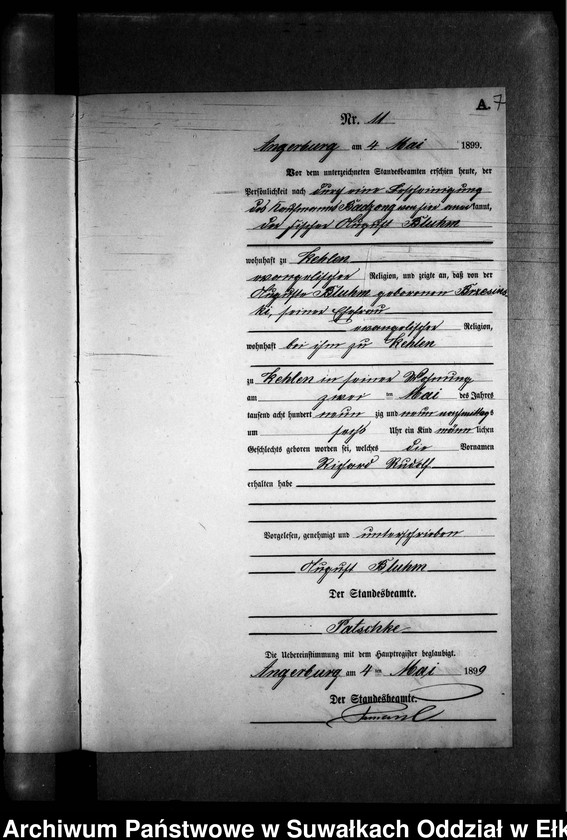 A. 7
Nr. 11
Angerburg am 4 Mai 1899.
Vor dem unterzeichneten Standesbeamten erschien heute, der
Persönlichkeit nach durch eine Bescheinigung
des Kaufmanns Badzong von hier anerkannt,
der Fischer August Bluhm
wohnhaft zu Kehlen
evangelischer Religion, und zeigte an, daß von der
Auguste Bluhm geborenen Brzesins
ki, seiner Ehefrau
evangelischer Religion,
wohnhaft bei ihm zu Kehlen
zu Kehlen in seiner Wohnung
am zwei ten Mai des Jahres
tausend acht hundert neun zig und neun nachmittags
um sechs Uhr ein Kind männ lichen
Geschlechts geboren worden sei, welches die Vornamen
Richard Rudolf
erhalten habe
Vorgelesen, genehmigt und unterschrieben
August Bluhm
Der Standesbeamte.
Patschke
Die Uebereinstimmung mit dem Hauptregister beglaubigt.
Angerburg am 4 ten Mai 1899
Der Standesbeamte.
Archiwum Państwowe w Suwałkach Oddział w Ełk